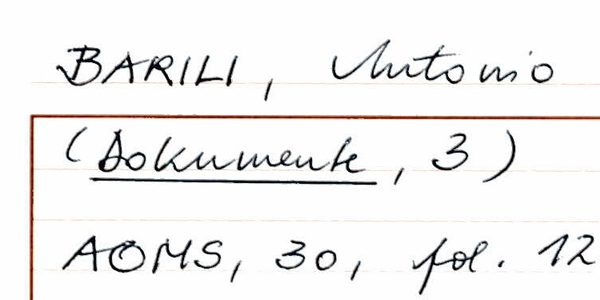 BARILI, Antonio
(Dokumente, 3)
AOMS, 30, fol. 12